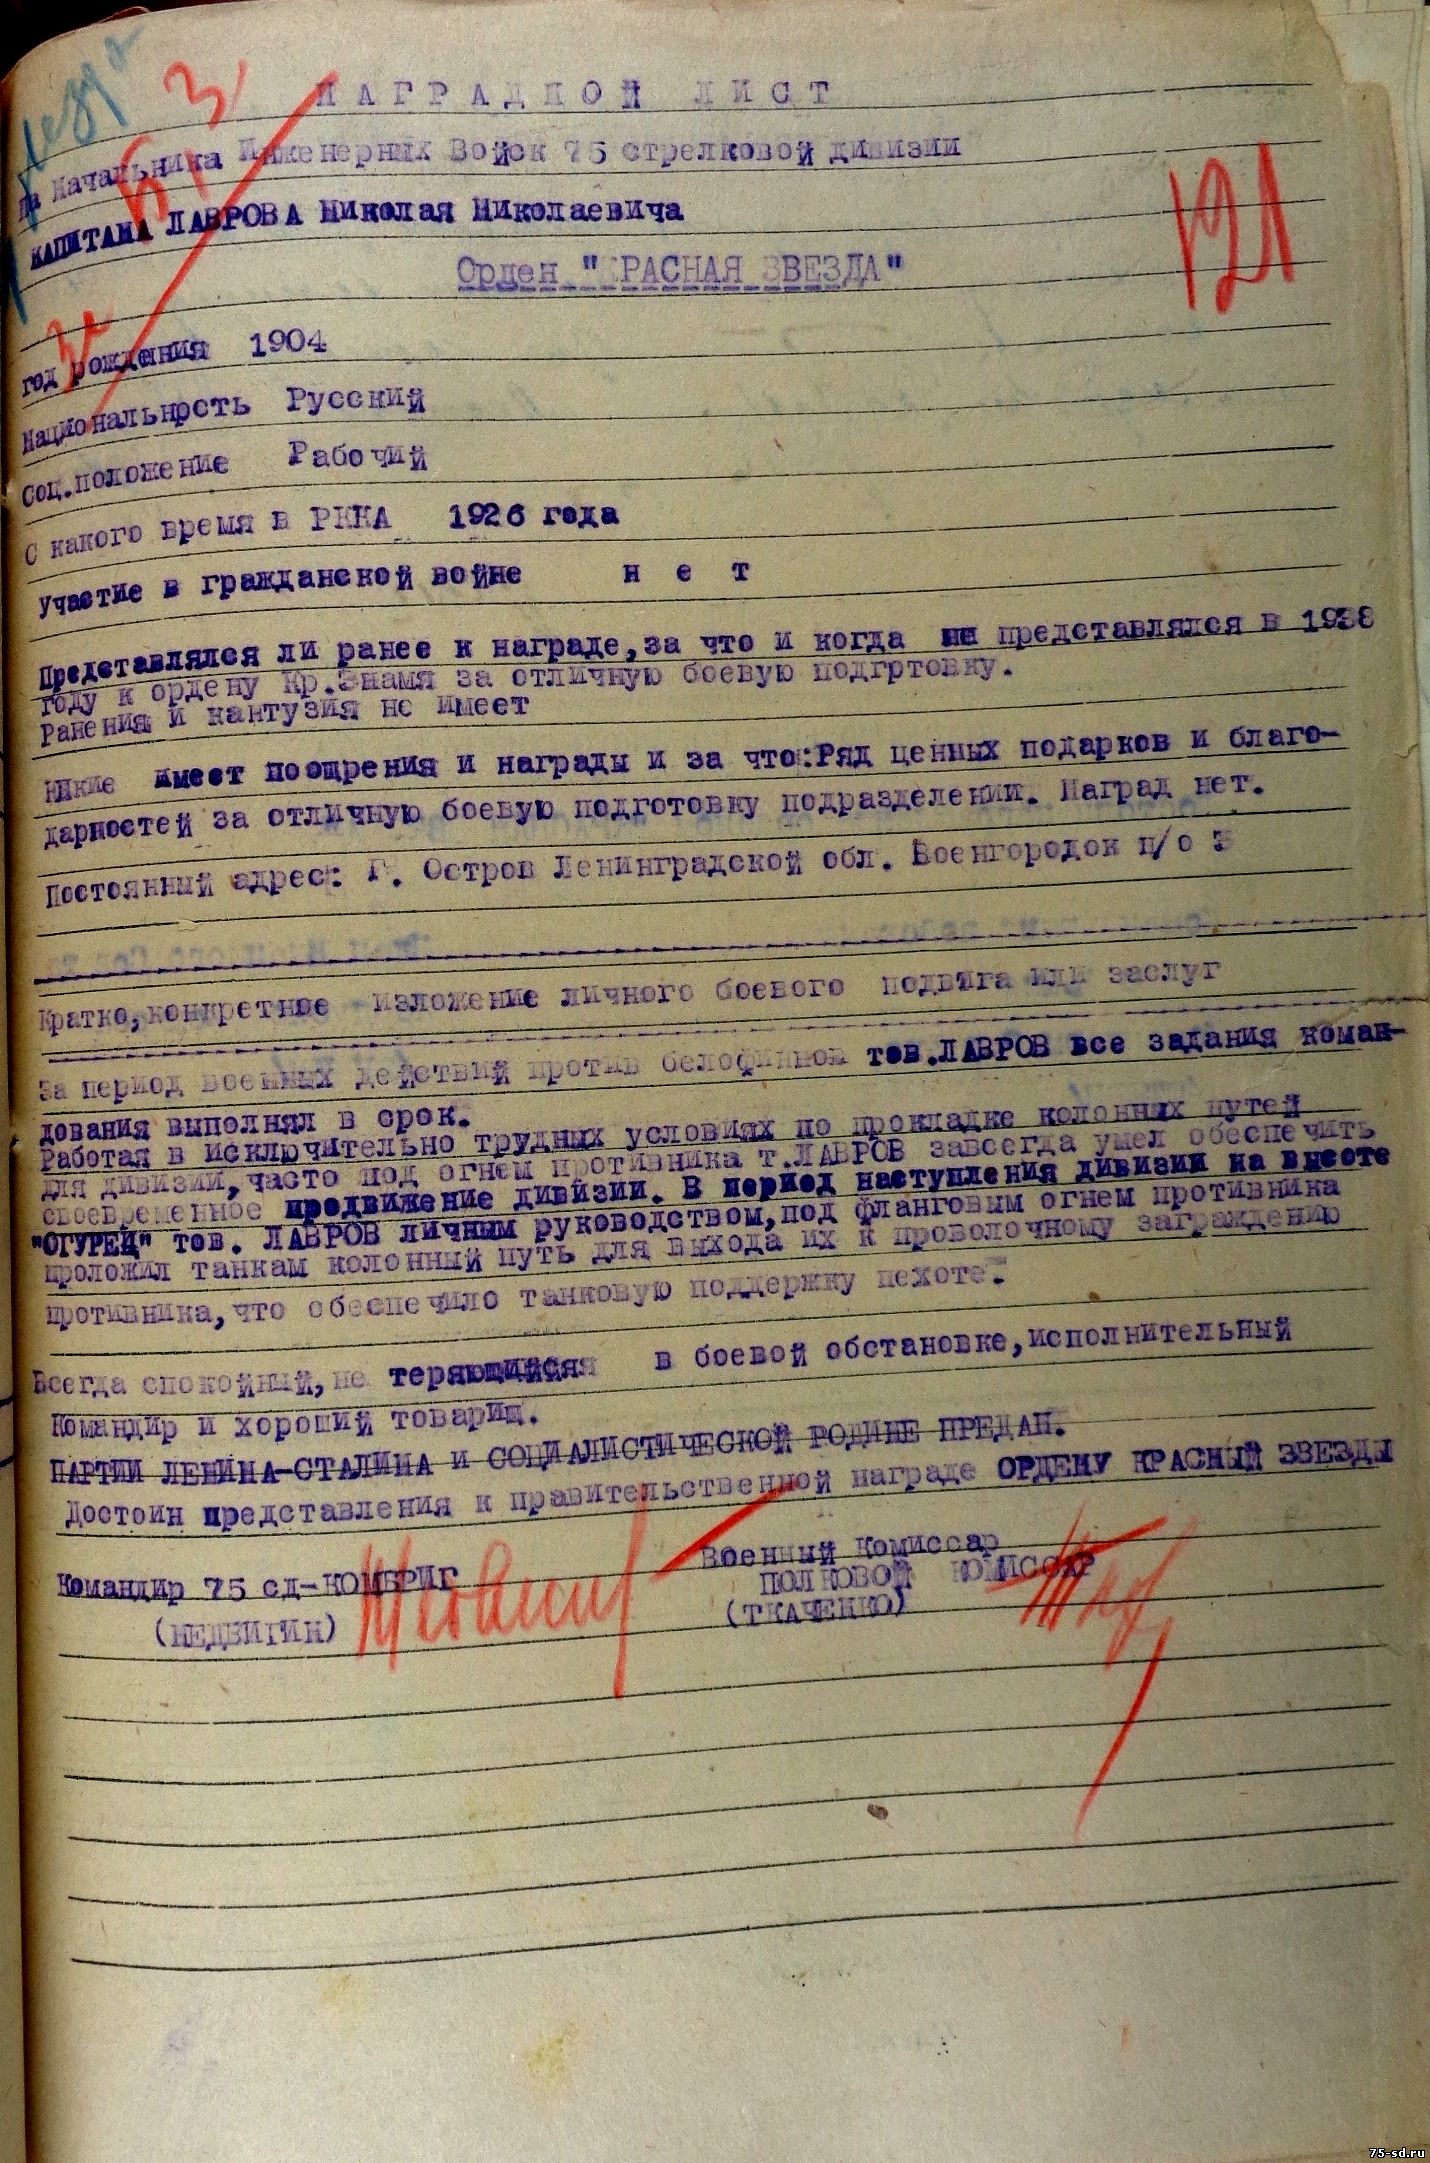 НАГРАДНОЙ ЛИСТ
На Начальника Инженерных Войск 75 стрелковой дивизии
КАПИТАНА ЛАВРОВА Николая Николаевича
Орден "КРАСНАЯ ЗВЕЗДА"
121
год рождения 1904
Национальность Русский
Соц.положение Рабочий
С какого время в РККА 1926 года
Участие в гражданской войне н е т
Представлялся ли ранее к награде,за что и когда представлялся в 1938
году к ордену Кр.Знамя за отличную боевую подгртовку.
Ранения и кантузия не имеет
имеет поощрения и награды и за что:Ряд ценных подарков и благо-
дарностей за отличную боевую подготовку подразделении. Наград нет.
Постоянный адрес: Г. Остров Ленинградской обл. Военгородок п/о 3
Кратко,конкретное изложение личного боевого подвига или заслуг
За период военных действий против белофиннов тов.ЛАВРОВ все задания коман-
дования выполнял в срок.
Работая в исключительно трудных условиях по прокладке колонных путей
для дивизии,часто под огнем противника т.ЛАВРОВ завсегда умел обеспечить
своевременное продвижение дивизии. В период наступления дивизии на высоте
"ОГУРЕЦ" тов. ЛАВРОВ личным руководством,под фланговым огнем противника
проложил танкам колонный путь для выхода их к проволочному заграждению
противника,что обеспечило танковую поддержку пехоте.
Всегда спокойный,не теряющийся в боевой обстановке,исполнительный
Командир и хороший товарищ.
ПАРТИИ ЛЕНИНА-СТАЛИНА и СОЦИАЛИСТИЧЕСКОЙ РОДИНЕ ПРЕДАН.
Достоин представления к правительственной награде ОРДЕНУ КРАСНЫЙ ЗВЕЗДЫ
Командир 75 сд-КОМБРИГ
(НЕДВИГИН)
Военный Комиссар
ПОЛКОВОЙ КОМИССАР
(ТКАЧЕНКО)
75-sd.ru